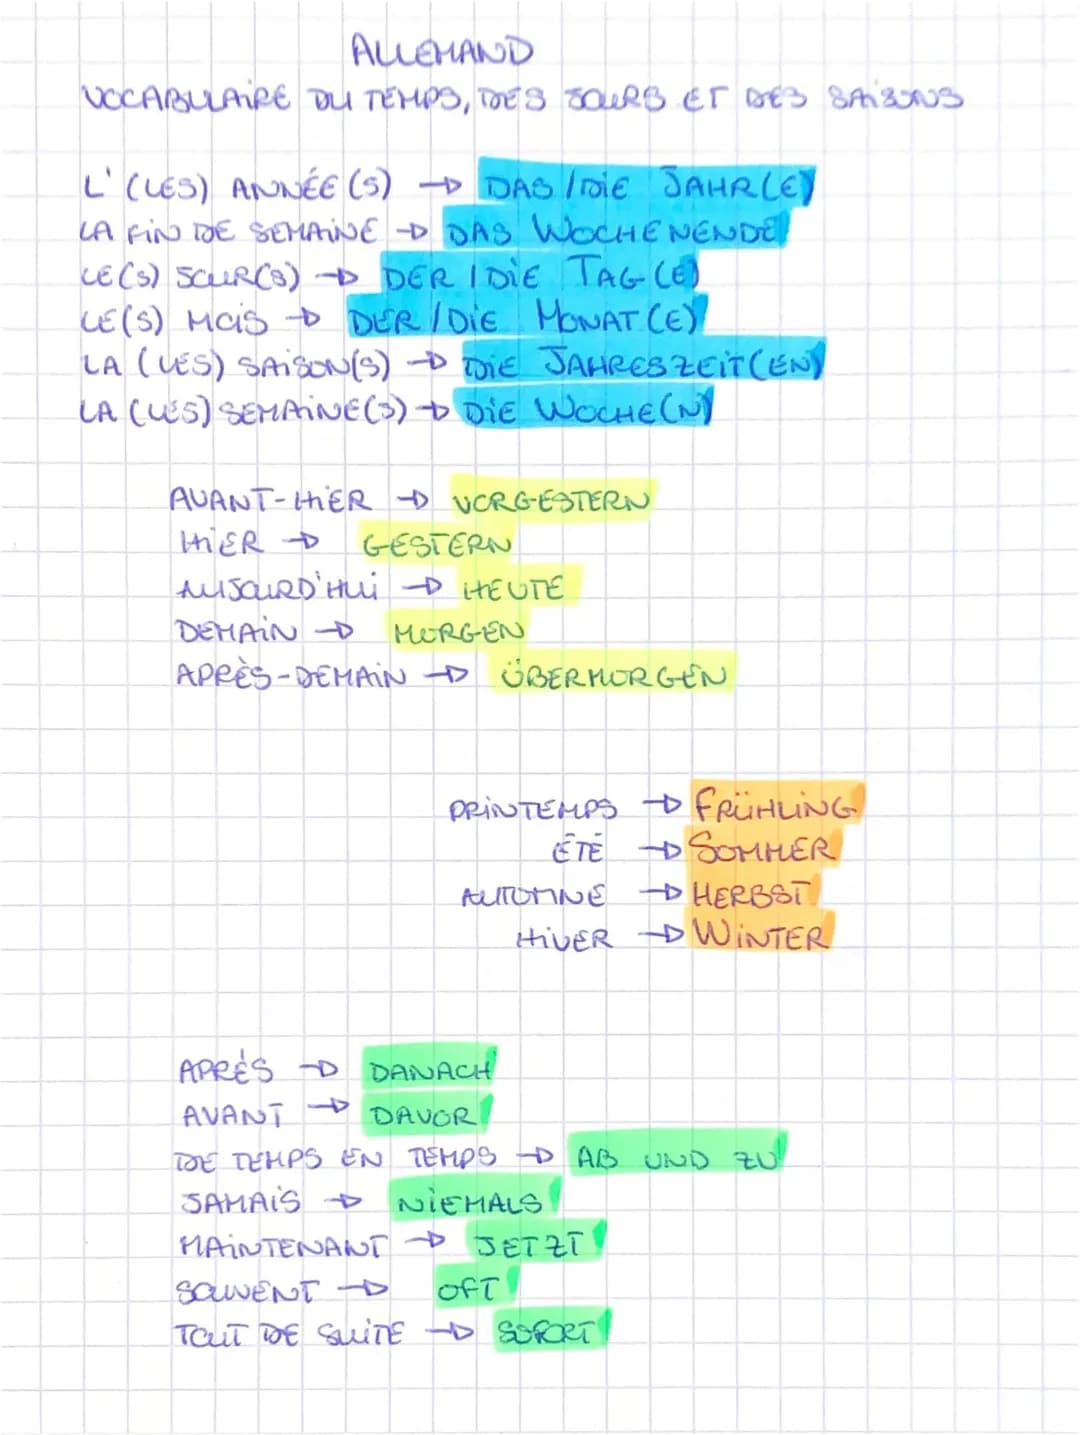 ALLEMAND
VOCABULAIRE DU TEMPS, DES JOURS ET DES SAISONS
L' (LES) ANNÉE(S) → DAS / DIE JAHR(E)
LA FIN DE SEMAINE → DAS WOCHENENDE
LE(S) JOUR(S) → DER / DIE TAG(E)
LE(S) MOIS → DER / DIE MONAT(E)
LA (LES) SAISON(S) → DIE JAHRESZEIT(EN)
LA (LES) SEMAINE(S) → DIE WOCHE(N)
AVANT-HIER → VORGESTERN
HIER → GESTERN
AUJOURD'HUI → HEUTE
DEMAIN → MORGEN
APRÈS-DEMAIN → ÜBERMORGEN
PRINTEMPS → FRÜHLING
ÉTÉ → SOMMER
AUTOMNE → HERBST
HIVER → WINTER
APRÈS → DANACH
AVANT → DAVOR
DE TEMPS EN TEMPS → AB UND ZU
JAMAIS → NIEMALS
MAINTENANT → JETZT
SOUVENT → OFT
TOUT DE SUITE → SOFORT